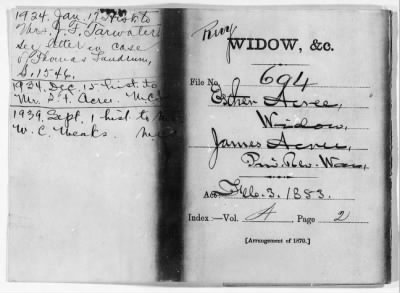 1924. Jan. 17 Hist to
Mrs. J. F. Tarwater
See letter in case
of Thomas Landrum,
S. 1546.
1934. Dec. 15 hist. to
Mr. Acree.
1939. Sept. 1 hist. to
W. C. Meaks.
Rev
WIDOW, &c.
File No. 694
Esther Acree,
Widow,
James Acree,
Rev. War,
Act: Feb. 3. 1853.
Index:—Vol. A, Page 2
[Arrangement of 1870.]